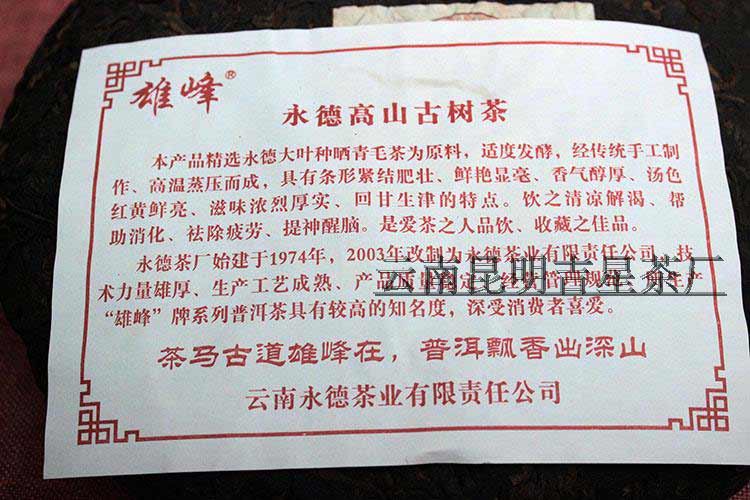 雄峰®
永德高山古树茶
本产品精选永德大叶种晒青毛茶为原料，适度发酵，经传统手工制
作、高温蒸压而成，具有条形紧结肥壮、鲜艳显毫、香气醇厚、汤色
红黄鲜亮、滋味浓烈厚实、回甘生津的特点。饮之清凉解渴、帮
助消化、祛除疲劳、提神醒脑。是爱茶之人品饮、收藏之佳品。
永德茶厂始建于1974年，2003年改制为永德茶业有限责任公司，技
术力量雄厚、生产工艺成熟、产品质量稳定、经营管理规范、所生产
“雄峰”牌系列普洱茶具有较高的知名度，深受消费者喜爱。
茶马古道雄峰在，普洱飘香出深山
云南永德茶业有限责任公司
云南昆明吉星茶厂